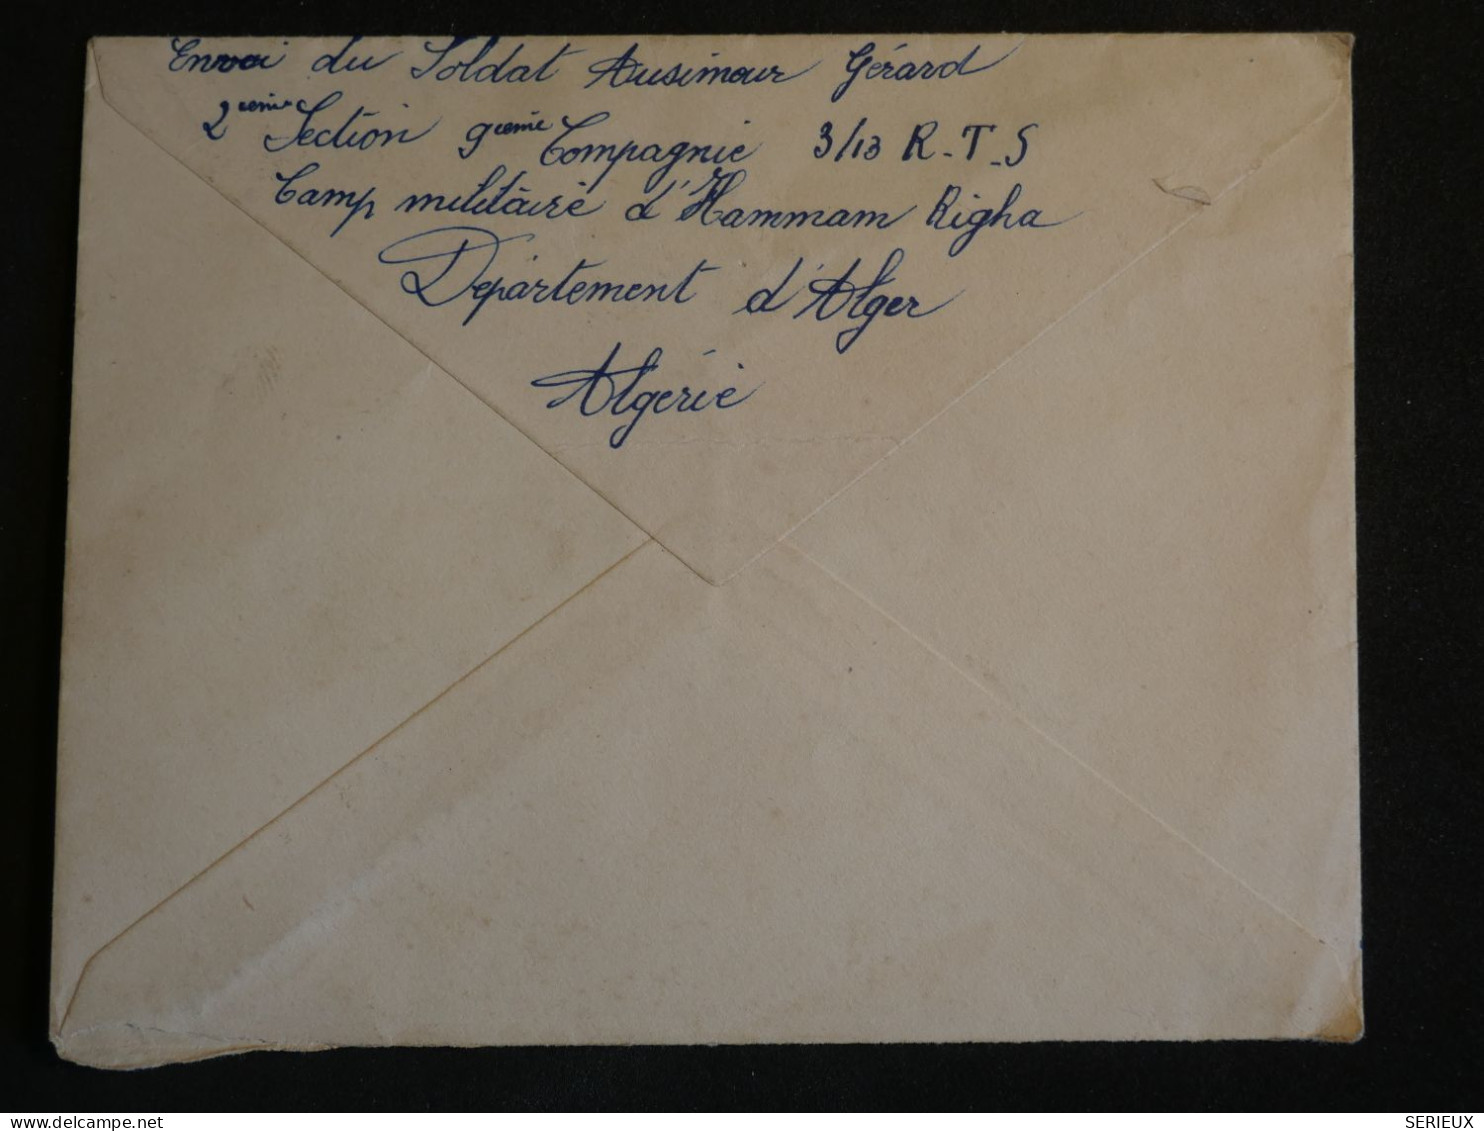 Envoi du Soldat Ausimour Gérard
2ème Section 9ème Compagnie 3/13 R-T-S
Camp militaire d'Hammam Righa
Département d'Alger
Algérie
delcampe.net
SERIEUX